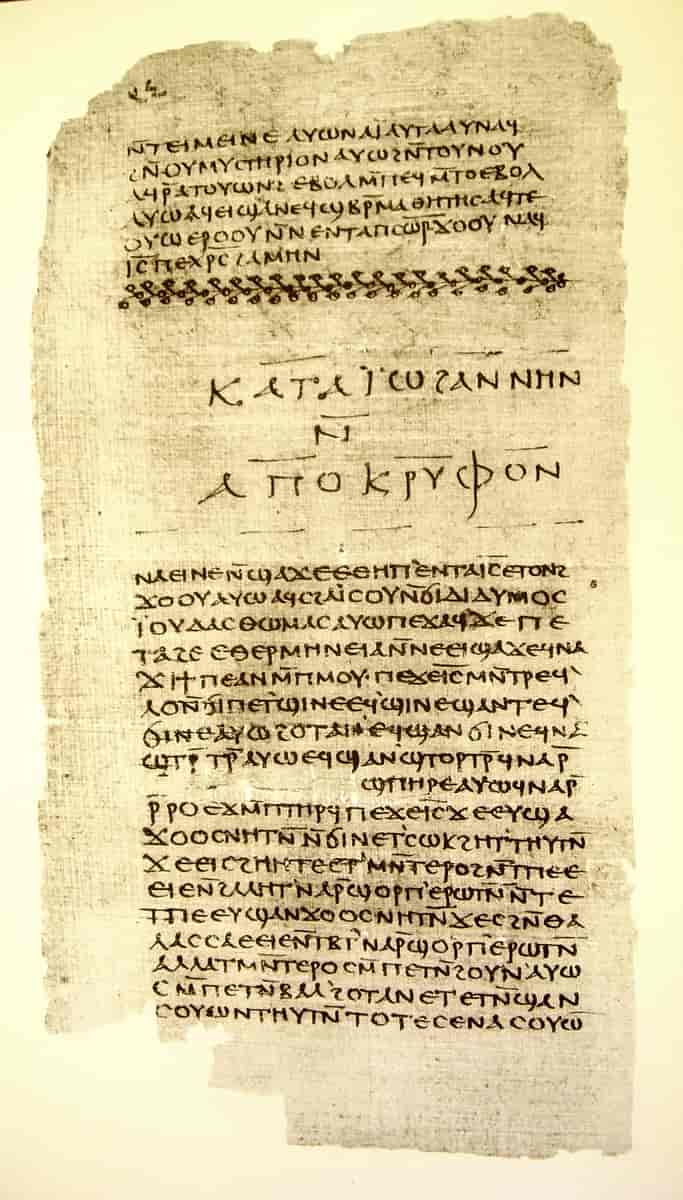 ⲛ̅ⲧⲉⲓⲙⲉⲓⲛⲉ ⲁⲩⲱ ⲛⲁⲓ̈ ⲁⲩⲧⲁⲁⲩ ⲛⲁϥ
ϩⲛ̅ⲟⲩⲙⲩⲥⲧⲏⲣⲓⲟⲛ ⲁⲩⲱ ϩⲛ̅ⲧⲟⲩⲛⲟⲩ
ⲁϥⲣ̅ⲁⲧⲟⲩⲱⲛϩ ⲉⲃⲟⲗ ⲙ̅ⲡⲉϥⲙ̅ⲧⲟ ⲉⲃⲟⲗ
ⲁⲩⲱ ⲁϥⲉⲓ ϣⲁ ⲛⲉϥϣⲃⲣ̅ⲙⲁⲑⲏⲧⲏⲥ ⲁϥⲧⲉ
ⲟⲩⲱ ⲉⲣⲟⲟⲩ ⲛ̅ⲛⲉⲛⲧⲁⲡⲥⲱ̅ⲣ̅ ϫⲟⲟⲩ ⲛⲁϥ
ⲓ̅ⲥ̅ ⲡⲉⲭⲣ̅ⲥ̅ ϩⲁⲙⲏⲛ
ⲕⲁⲧⲁ ⲓ̈ⲱϩⲁⲛⲛⲏⲛ
ⲛ̅
ⲁⲡⲟⲕⲣⲩⲫⲟⲛ
ⲛⲁⲉⲓ ⲛⲉ ⲛ̅ϣⲁϫⲉ ⲉⲑⲏⲡ` ⲉⲛⲧⲁⲓ̅ⲥ̅ ⲉⲧⲟⲛϩ
ϫⲟⲟⲩ ⲁⲩⲱ ⲁϥⲥϩⲁⲓ̈ⲥⲟⲩ ⲛ̅ϭⲓ ⲇⲓⲇⲩⲙⲟⲥ
ⲓ̈ⲟⲩⲇⲁⲥ ⲑⲱⲙⲁⲥ ⲁⲩⲱ ⲡⲉϫⲁϥ ϫⲉ ⲡⲉ
ⲧⲁϩⲉ ⲉⲑⲉⲣⲙⲏⲛⲉⲓⲁ ⲛ̅ⲛⲉⲉⲓϣⲁϫⲉ ϥⲛⲁ
ϫⲓ ϯⲡⲉ ⲁⲛ ⲙ̅ⲡⲙⲟⲩ· ⲡⲉϫⲉ ⲓ̅ⲥ̅ ⲙⲛ̅ⲧⲣⲉϥ`
ⲗⲟ ⲛ̅ϭⲓ ⲡⲉⲧ`ϣⲓⲛⲉ ⲉϥϣⲓⲛⲉ ϣⲁⲛⲧⲉϥ`
ϭⲓⲛⲉ ⲁⲩⲱ ϩⲟⲧⲁⲛ` ⲉϥϣⲁⲛϭⲓⲛⲉ ϥⲛⲁ
ϣⲧⲣ̅ⲧⲣ̅ ⲁⲩⲱ ⲉϥϣⲁⲛϣⲧⲟⲣⲧⲣ̅ ϥⲛⲁⲣ̅
ϣⲡⲏⲣⲉ ⲁⲩⲱ ϥⲛⲁⲣ̅
ⲣ̅ⲣⲟ ⲉϫⲙ̅ ⲡⲧⲏⲣϥ ⲡⲉϫⲉ ⲓ̅ⲥ̅ ϫⲉ ⲉⲩϣⲁ
ϫⲟⲟⲥ ⲛⲏⲧⲛ̅ ⲛ̅ϭⲓ ⲛⲉⲧ`ⲥⲱⲕ ϩⲏⲧ` ⲧⲏⲩⲧⲛ̅
ϫⲉ ⲉⲓⲥϩⲏⲏⲧⲉ ⲉⲧ`ⲙⲛ̅ⲧⲉⲣⲟ ϩⲛ̅ ⲧⲡⲉ ⲉ
ⲉⲓⲉ ⲛ̅ϩⲁⲗⲏⲧ` ⲛⲁⲣ̅ϣⲟⲣⲡ` ⲉⲣⲱⲧⲛ̅ ⲛ̅ⲧⲉ
ⲧⲡⲉ ⲉⲩϣⲁⲛϫⲟⲟⲥ ⲛⲏⲧⲛ̅ ϫⲉ ⲥϩⲛ̅ ⲑⲁ
ⲗⲁⲥⲥⲁ ⲉⲉⲓⲉ ⲛ̅ⲧⲃⲧ` ⲛⲁⲣ̅ϣⲟⲣⲡ` ⲉⲣⲱⲧⲛ̅
ⲁⲗⲗⲁ ⲧⲙⲛ̅ⲧⲉⲣⲟ ⲥⲙ̅ⲡⲉⲧⲛ̅ϩⲟⲩⲛ` ⲁⲩⲱ
ⲥⲙ̅ⲡⲉⲧⲛ̅ⲃⲁⲗ` ϩⲟⲧⲁⲛ ⲉⲧⲉⲧⲛ̅ϣⲁⲛ
ⲥⲟⲩⲱⲛ ⲧⲏⲩⲧⲛ̅ ⲧⲟⲧⲉ ⲥⲉⲛⲁⲥⲟⲩⲱ